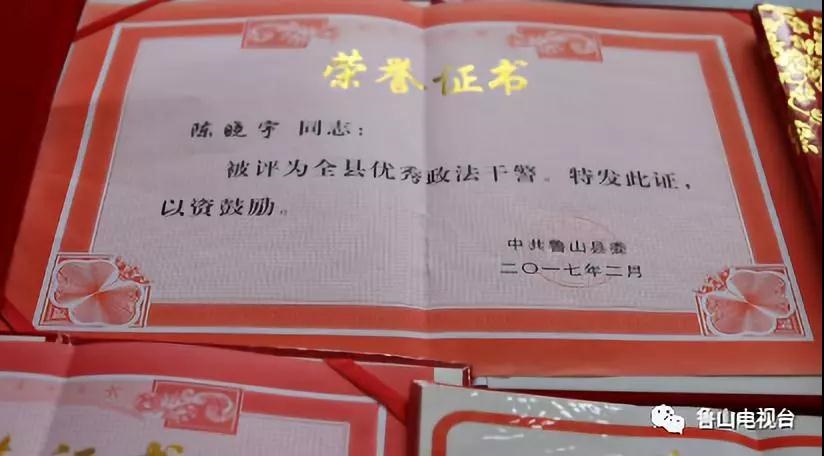 荣誉证书
陈晓宇 同志：
被评为全县优秀政法干警。特发此证，
以资鼓励。
中共鲁山县委
二〇一七年二月
证书
鲁山电视台